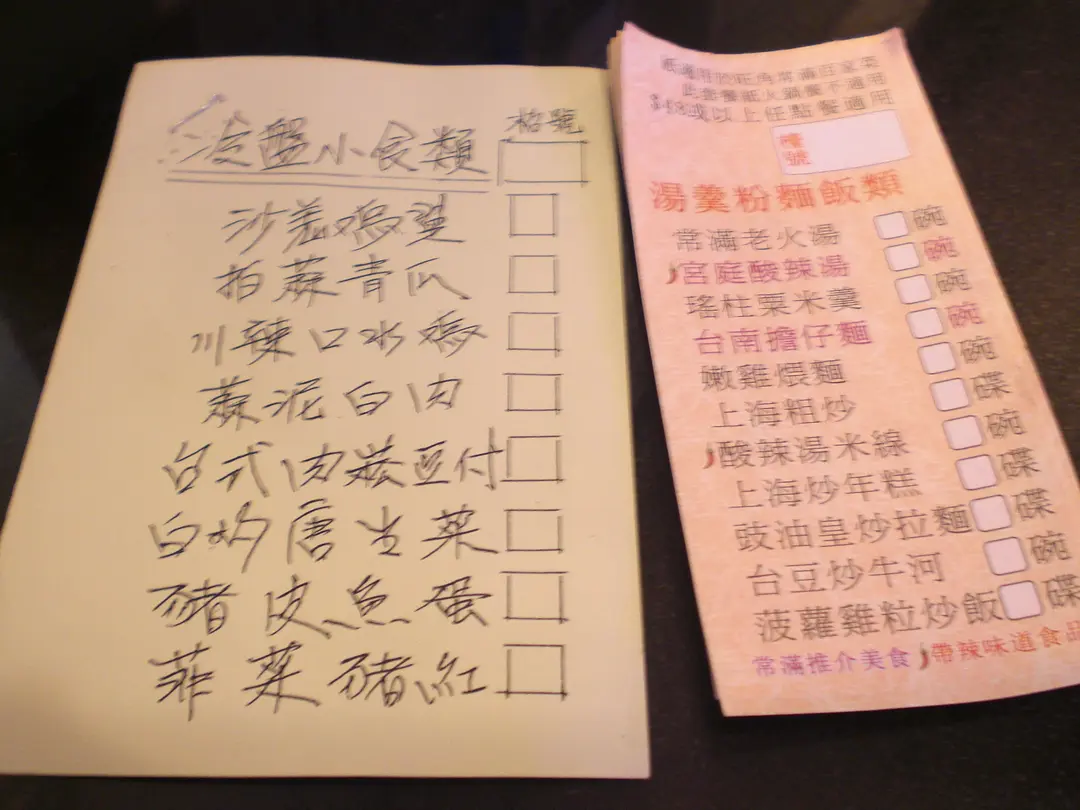 盤小食類
枱號
沙羌鸡
拍蒜青瓜
川辣口水鸡
蒜泥白肉
台式肉菘豆付
白灼唐生菜
豬皮魚蛋
菲菜豬紅
祇適用於旺角常滿百家菜
此套餐紙火鍋餐不適用
$48或以上任點餐適用
檯號
湯羹粉麵飯類
常滿老火湯 碗
宮庭酸辣湯 碗
瑤柱粟米羹 碗
台南擔仔麵 碗
嫩雞煨麵 碗
上海粗炒 碟
酸辣湯米線 碗
上海炒年糕 碟
豉油皇炒拉麵 碟
台豆炒牛河 碗
菠蘿雞粒炒飯 碟
常滿推介美食 帶辣味道食品